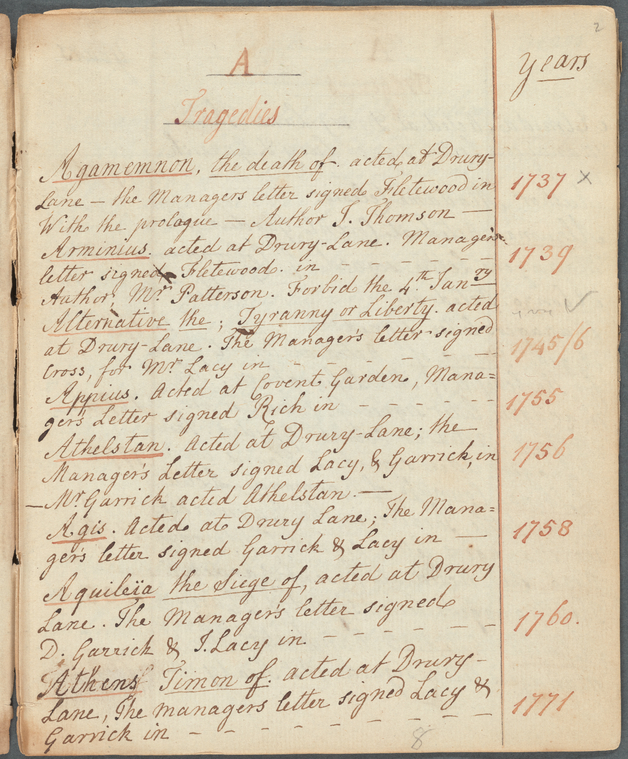 2
A
Years
Tragedies
Agamemnon, the death of. acted at Drury-
Lane — the Managers letter signed Fletewood in 1737 x
With the prologue — Author J. Thomson —
Arminius. acted at Drury-Lane. Managers 1739
letter signed Fletewood. in — — — —
Author Mr. Patterson. Forbid the 4th Janry
Alternative the; Tyranny or Liberty. acted
at Drury-Lane. The Manager's letter signed 1745/6
Cross, for Mr Lacy in — — — — —
Appius. Acted at Covent Garden, Mana=
ger's Letter signed Rich in — — — — — 1755
Athelstan. acted at Drury-Lane; the
Manager's Letter signed Lacy, & Garrick, in 1756
— Mr. Garrick acted Athelstan. —
Agis. Acted at Drury Lane; The Mana=
ger's letter signed Garrick & Lacy in — 1758
Aquileïa the Siege of, acted at Drury
Lane. The Manager's letter signed
D. Garrick & J. Lacy in — — — — 1760.
Athens Timon of. acted at Drury-
Lane, The managers letter signed Lacy &
Garrick in — — — — — — — 1771
8